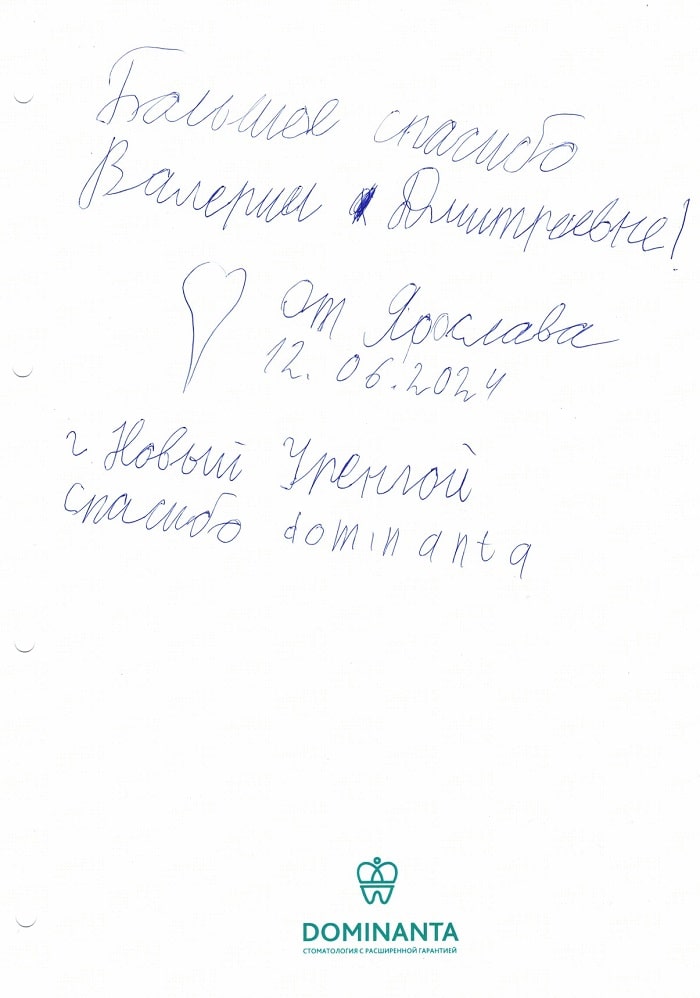 Большое спасибо
Валерии Дмитраевне!
от Ярослава
12.06.2024
г Новый Уренгой
спасибо dominanta
DOMINANTA
СТОМАТОЛОГИЯ С РАСШИРЕННОЙ ГАРАНТИЕЙ